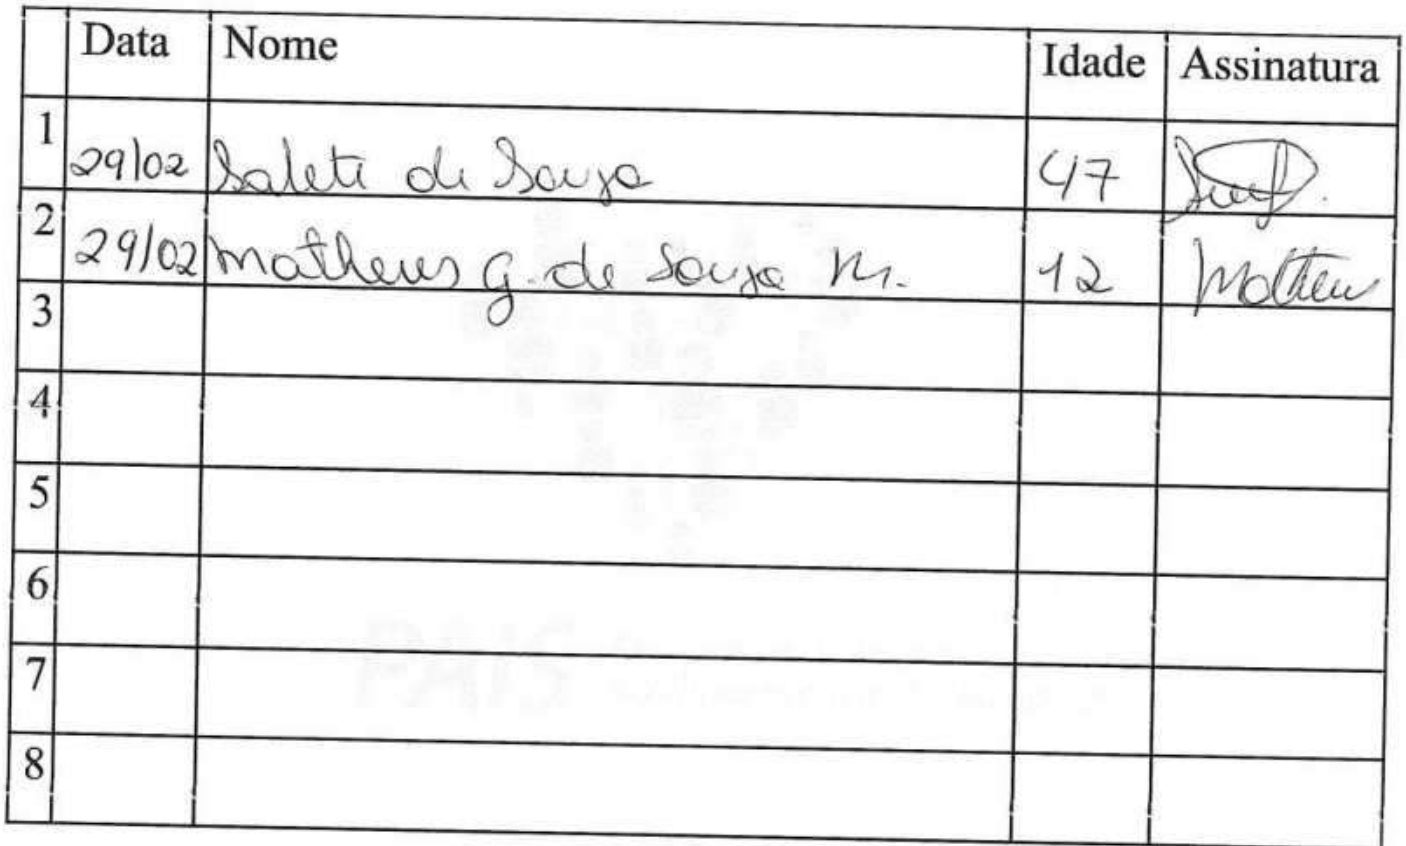 Data Nome Idade Assinatura
1 29/02 Salete de Souza 47
2 29/02 Matheus G. de Souza M. 12 Matheus
3
4
5
6
7
8
PAIS